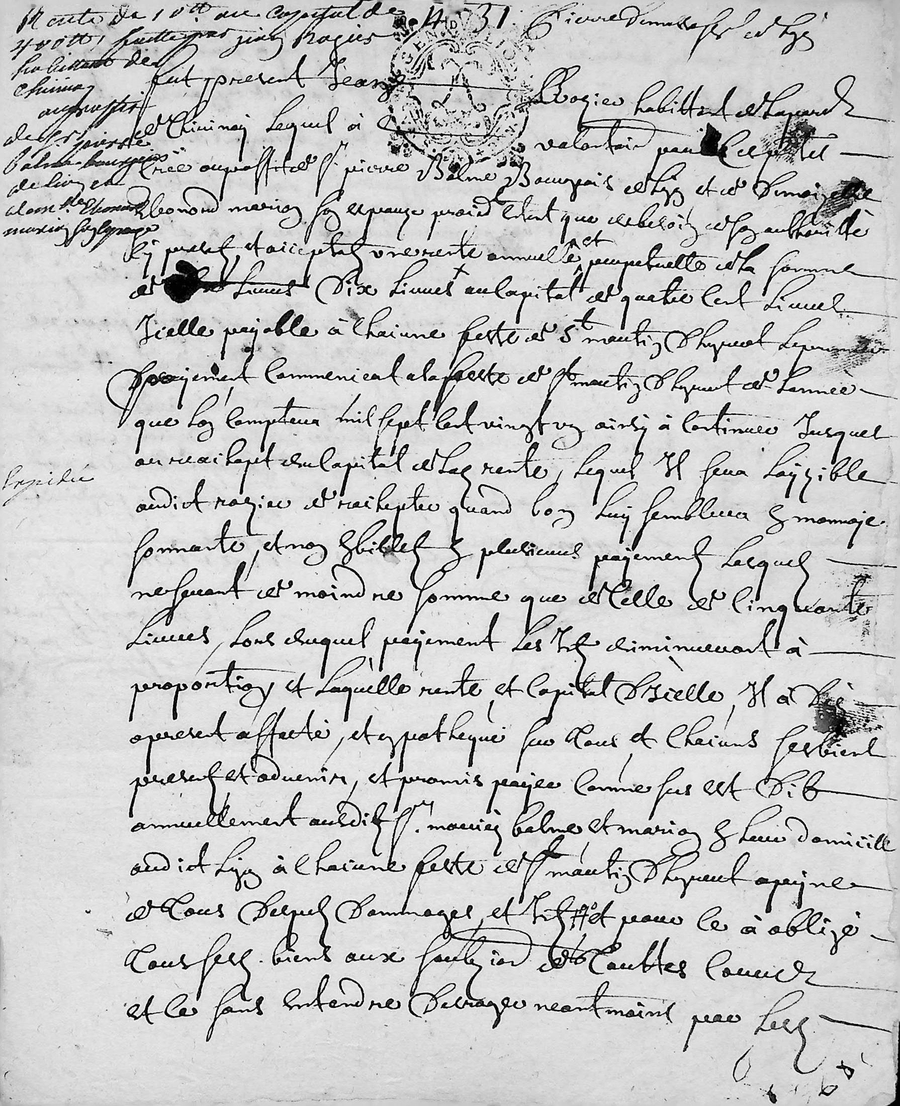 Rente de 10 tt au capital de
400 tt, faitte par jean Rogier
habittant de
Chivinay
au proffit
de Sr pierre
balme bourgeois
de Lion et
dam.lle Eleonord
marion son epouze
4. 31.
GEN D
Pierre
fut present Jean
Rogier habittant de la parr.
de Chivinay Lequel à
valontair
crée au proffit de Sr. pierre Balme Bourgeois de Lyon et de Dmoizelle
Eleonord marion son espouze procédant que de besoin de son authorité
Cy presentz, et acceptantz une rente annuelle et perpetuelle de la somme
de Livres Dix Livres au Capital de quatre Cent Livres
Icelle payable à Chacune feste de St martin D'hyvert Le premier
payement Commencant a la feste de St martin D'hyvert de Lannée
que Lon Comptera mil sept Cent vingt un ainsy à Continuer Jusques
au rachept du Capital de Lad. rente, Lequel Il sera Loyzible
Expedié
audict rogier de rachepter quand bon Luy semblera en monnoye
sonnante, et non en billet en plusieurs payement Lesquels
ne seront de moindre somme que de Celle de Cinquante
Livres, Lors duquel payement Les Intz diminueront à
proportion et Laquelle rente, et Capital D'Icelle, Il à Dès
apresent affecté, et ypothequé sur tous, et Chacuns ses bient
present et advenir, et promis payer Comme sus est Dit
annuellement ausditz Sr. mariez balme et marion en Leur domicille
audict Lyon à Chacune feste de St martin D'hyvert a peyne
de tous Despens Dommages, et Intz et pour Ce à obligé
tous ses biens aux de touttes Cours
et Ce sans Entendre Deroger neantmoins par Lesd